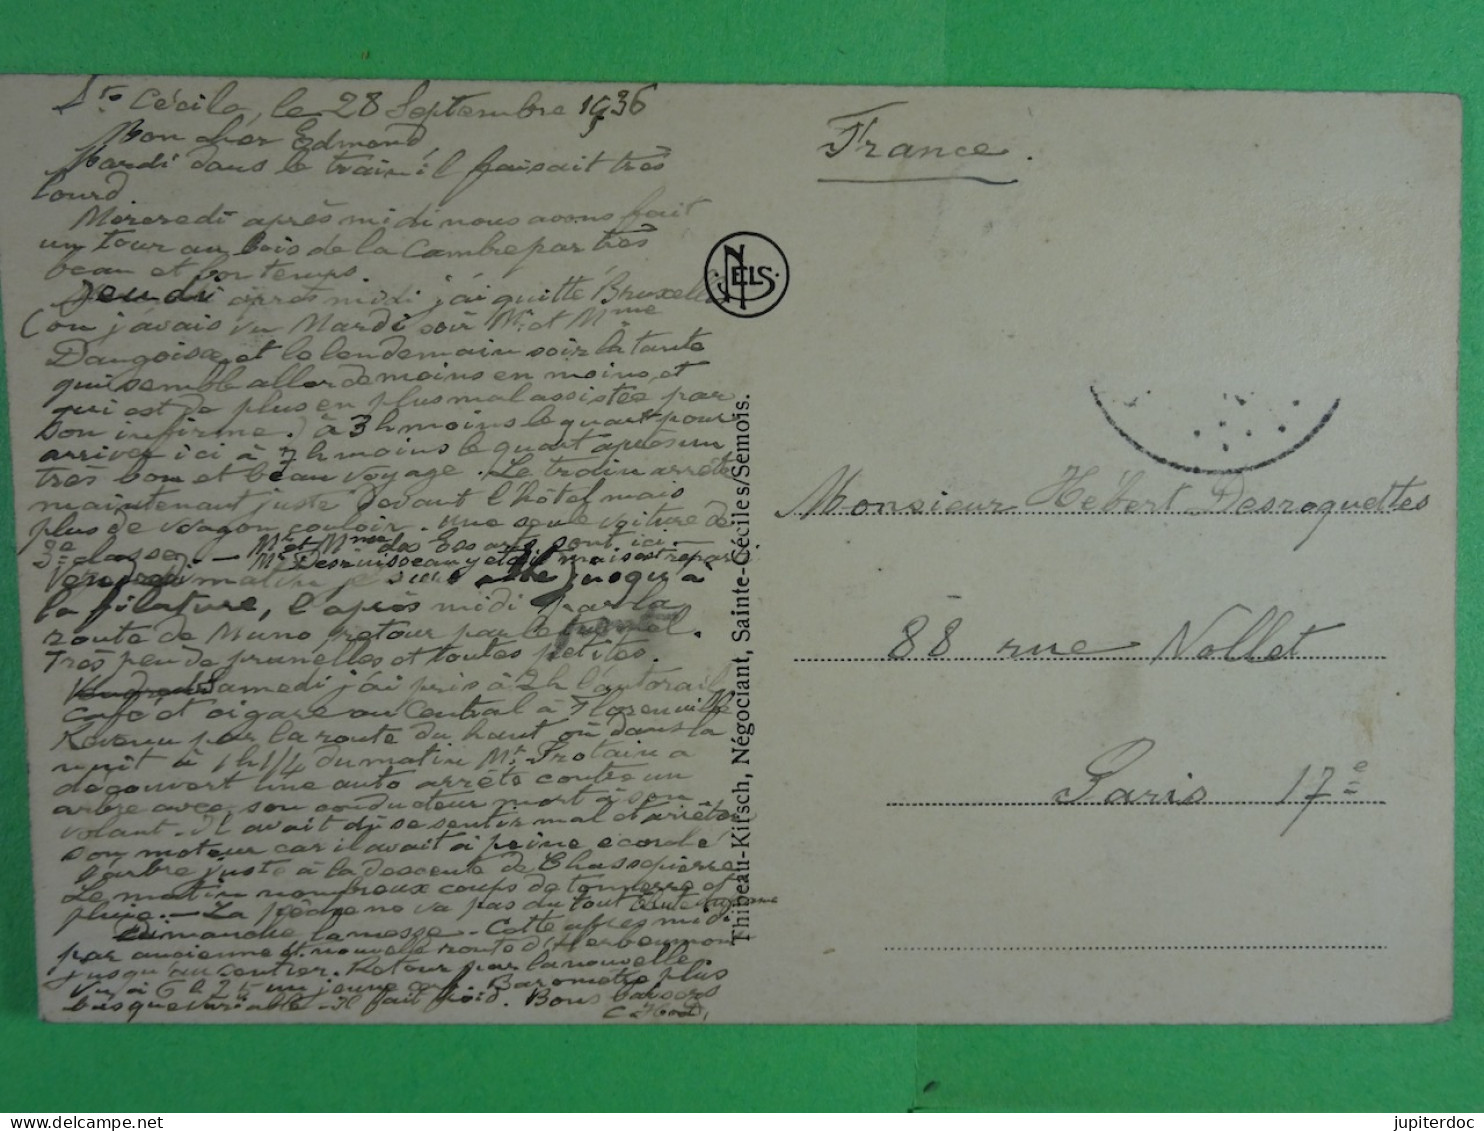 Ste Cécile, le 28 Septembre 1936
Mon cher Edmond,
Mardi dans le train il faisait très
lourd
Mercredi après midi nous avons fait
un tour au bois de la Cambre par très
beau et bon temps.
Jeudi après midi j'ai quitté Bruxelles
(où j'avais vu Mardi soir Mr et Mme
Dangoisse et le lendemain soir la tante
qui semble aller de moins en moins, et
qui est de plus en plus mal assistée par
son infirme.) à 3h moins le quart pour
arriver ici à 7h moins le quart après un
très bon et beau voyage. Le train arrête
maintenant juste devant l'hôtel mais
plus de wagon couloir. Une seule voiture de
3e classe. — Mr et Mme des Essarts sont ici.
Mr Desruisseaux y était mais est reparti
Vendredi matin je suis allé jusqu'à
la filature, l'après midi par la
route de Muno retour par le tunnel.
Très peu de prunelles et toutes petites.
Samedi j'ai pris à 2h l'autorail
café et cigare au Central à Florenville
Revenu par la route du haut où dans la
nuit à 1h 1/4 du matin Mr. Frotain a
découvert une auto arrêtée contre un
arbre avec son conducteur mort à son
volant. Il avait dû se sentir mal et arrêter
son moteur car il avait à peine écorché
l'arbre juste à la descente de Chassepierre
Le matin nombreux coups de tonnerre et
pluie. — La pêche ne va pas du tout cette semaine
Dimanche la messe. Cette après midi
par ancienne et nouvelle route d'Herbeumont
jusqu'au sentier. Retour par la nouvelle.
Vu à 6h25 un jeune cerf. Baromètre plus
bas que variable. Il fait froid. Bons baisers
France.
NELS
Thibeau-Kirsch, Négociant, Sainte-Cécile s/Semois.
Monsieur Hébert Desroquettes
88 rue Nollet
Paris 17e
jupiterdoc